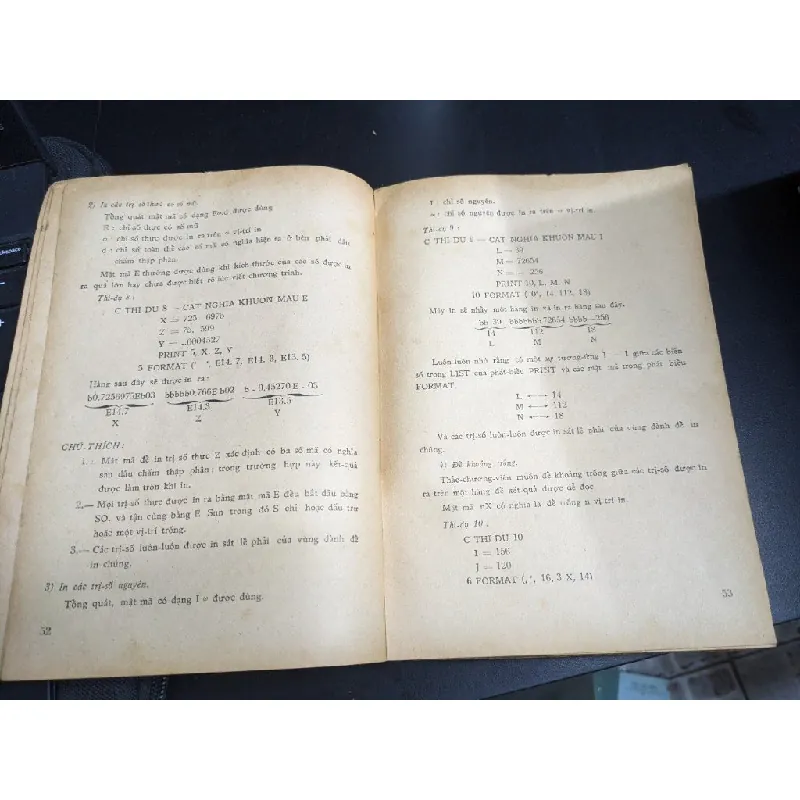 2) In các trị số thực có số mũ.
Tổng quát mật mã số dạng Ew.d được dùng
E : chỉ số thực có số mũ
w : chỉ số thực được in ra trên w vị-trí in
d : chỉ số toàn thể các số mã có nghĩa hiện ra ở bên phải dấu
chấm thập phân.
Mật mã E thường được dùng khi kích thước của các số được in
ra quá lớn hay chưa được biết rõ lúc viết chương trình.
Thí-dụ 8 :
C THI DU 8 — CAT NGHIA KHUON MAU E
X = 725 6975
Z = 76, 599
Y = .0004527
PRINT 5, X, Z, Y
5 FORMAT ( ' ', E14. 7, E14. 3, E13. 5)
Hàng sau đây sẽ được in ra :
b0.7256975Eb03 bbbbb0.766E b02 b - 0.45270 E - 03
E14.7 E14.3 E13.5
X Z Y
CHÚ THÍCH :
1. — Mật mã để in trị số thực Z xác định có ba số mã có nghĩa
sau dấu chấm thập phân ; trong trường hợp này kết-quả
được làm tròn khi in.
2.— Mọi trị số thực được in ra bằng mật mã E đều bắt đầu bằng
SO. và tận cùng bằng E San trong đó S chỉ hoặc dấu trừ
hoặc một vị-trí trống.
3.— Các trị-số luôn-luôn được in sát lề phải của vùng dành để
in chúng.
3) In các trị-số nguyên.
Tổng quát, mật mã có dạng I w được dùng.
52
I : chỉ số nguyên.
w : chỉ số nguyên được in ra trên w vị-trí in
Thí-dụ 9 :
C THI DU 8 — CAT NGHIA KHUON MAU I
L = 39
M = 72654
N = - 256
PRINT 10, L, M, N
10 FORMAT ( ' 0', 14 112, 18)
Máy in sẽ nhảy một hàng in và in ra hàng sau đây.
bb 39 bbbbbbb 72654 bbbb -256
14 112 18
L M N
Luôn-luôn nhớ rằng có một sự tương-ứng 1 — 1 giữa các biến
số trong LIST của phát-biểu PRINT và các mật mã trong phát biểu
FORMAT
L ⟷ 14
M ⟷ 112
N ⟷ 18
Và các trị-số luôn-luôn được in sát lề phải của vùng dành để in
chúng.
Để khoảng trống.
Thảo-chương-viên muốn để khoảng trống giữa các trị-số được in
ra trên một hàng để kết-quả được dễ đọc
Mật mã nX có nghĩa là để trống n vị-trí in.
Thí-dụ 10 :
C THI DU 10
I = 156
J = 120
6 FORMAT (' ', 16, 3 X, 14)
53